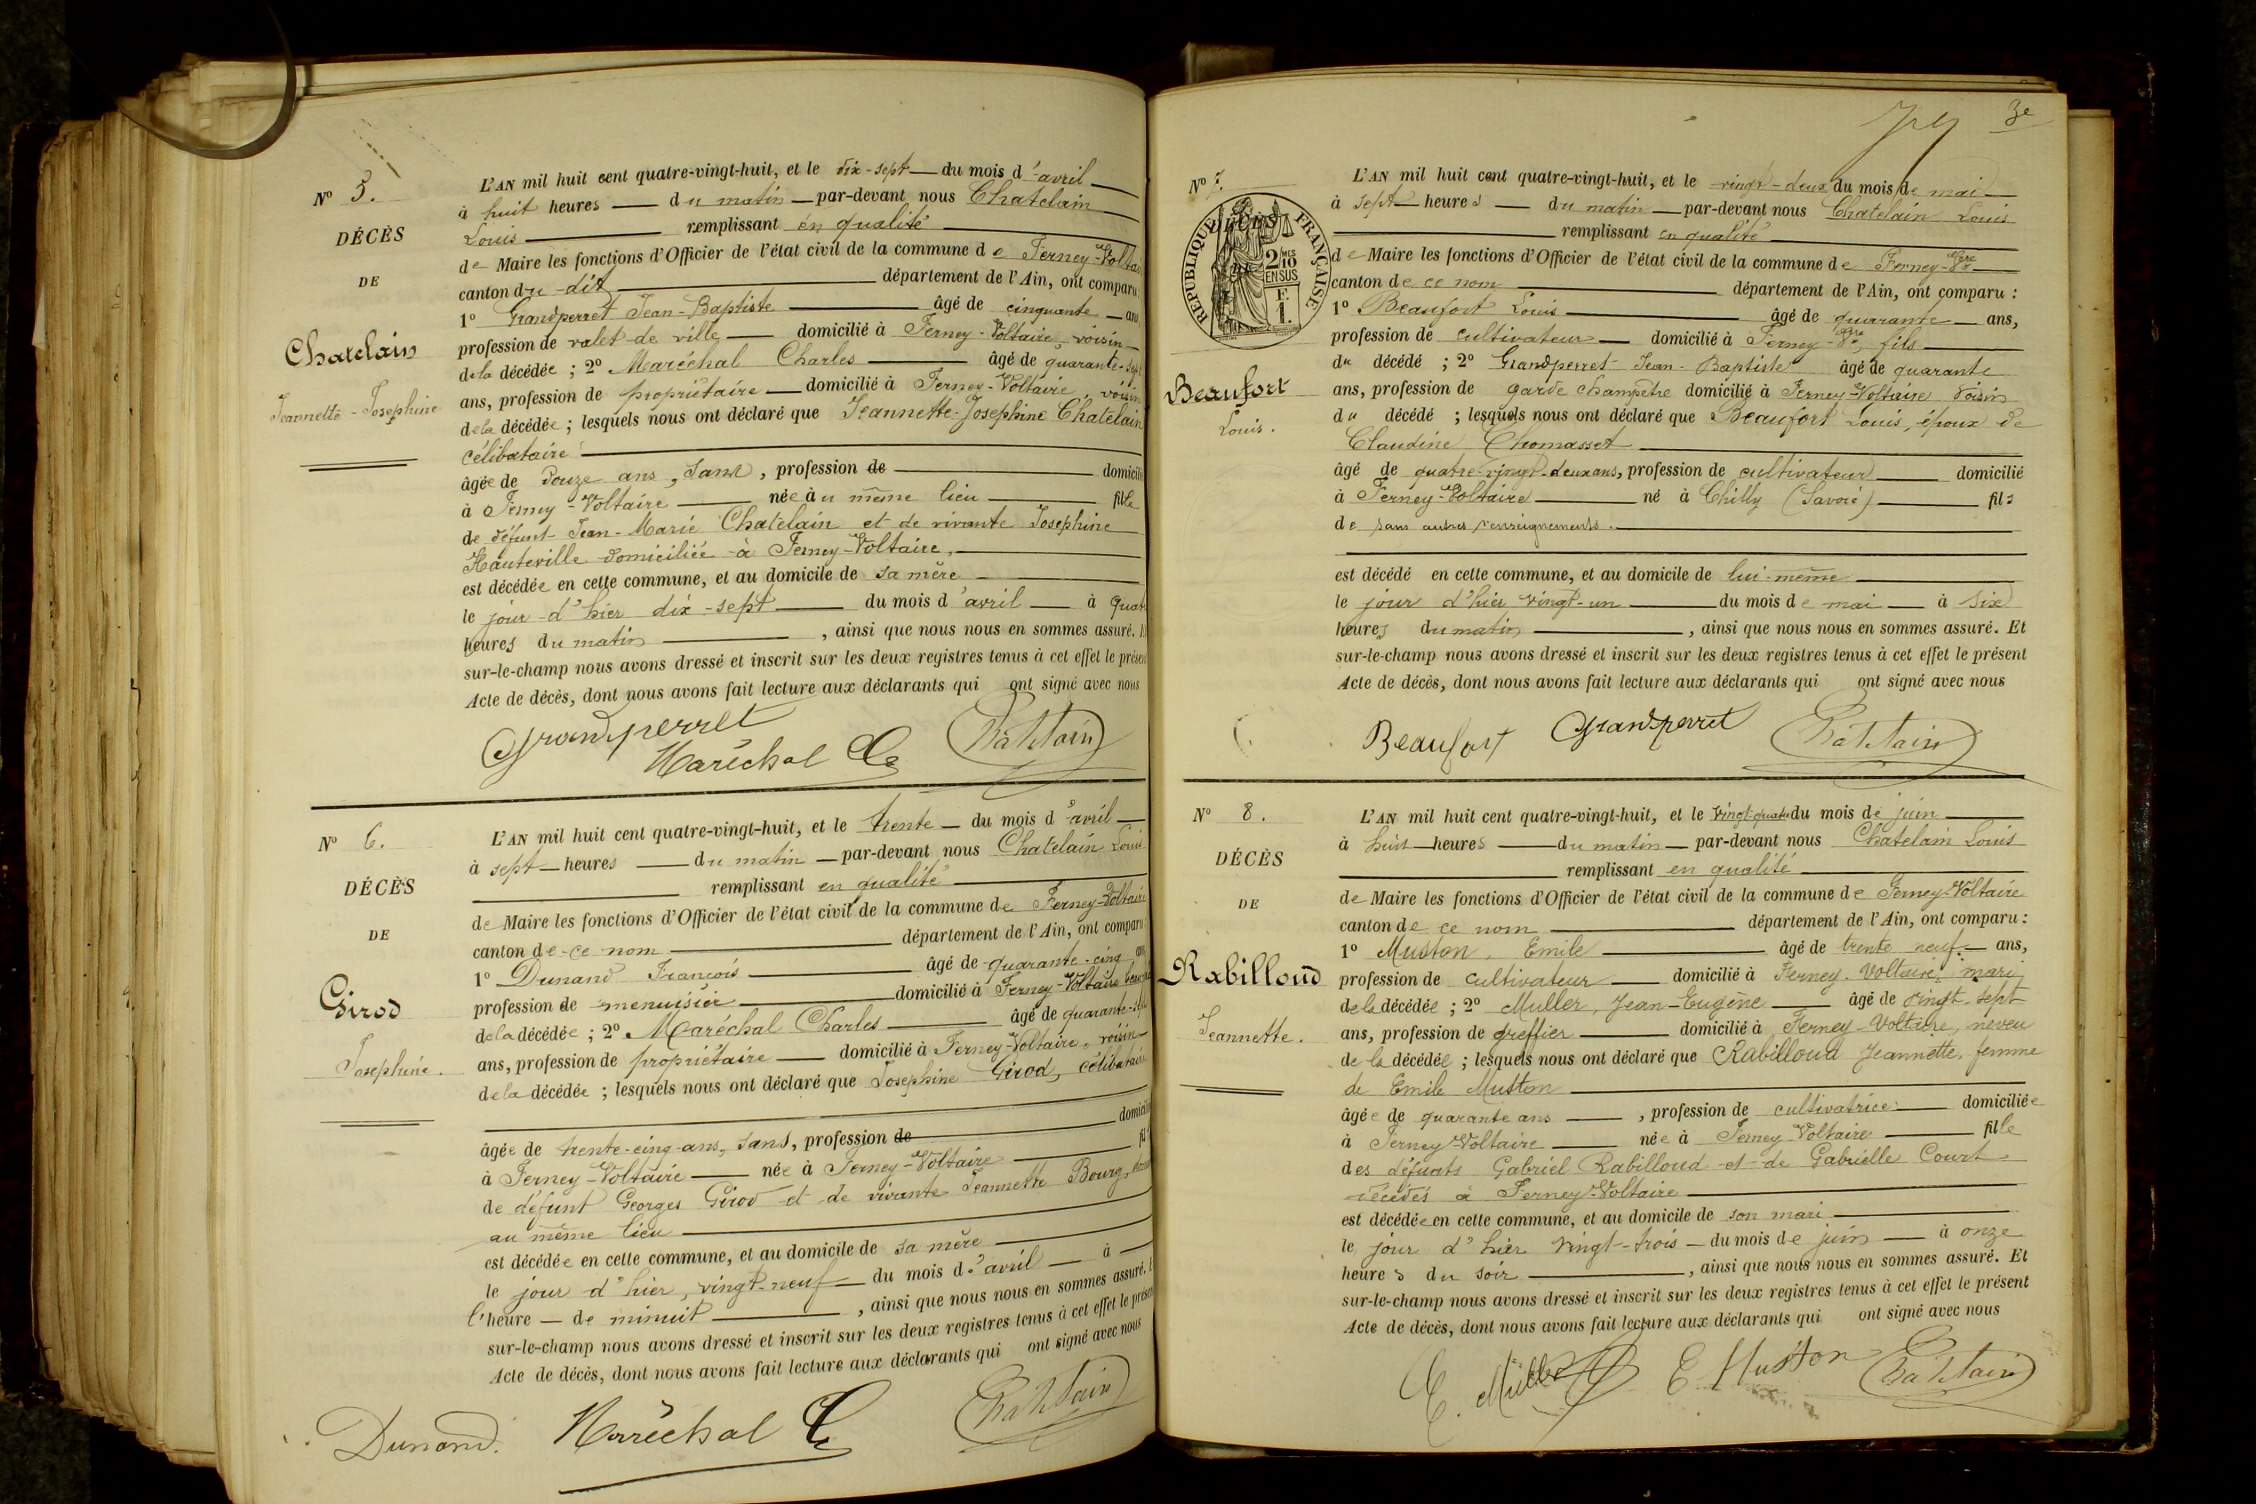 Nº 5.
DÉCÈS
DE
Chatelain
Jeannette-Josephine
L'AN mil huit cent quatre-vingt-huit, et le dix-sept du mois d'avril
à huit heures du matin par-devant nous Chatelain
Louis remplissant en qualité
de Maire les fonctions d'Officier de l'état civil de la commune de Ferney-Voltai
canton du-dit département de l'Ain, ont comparu
1º Grandperret Jean-Baptiste âgé de cinquante ans
profession de valet de ville domicilié à Ferney-Voltaire, voisin
de la décédée ; 2º Maréchal Charles âgé de quarante-sept
ans, profession de propriétaire domicilié à Ferney-Voltaire, voisin
de la décédée ; lesquels nous ont déclaré que Jeannette-Josephine Chatelain
célibataire
âgée de douze ans, sans, profession de domicili
à Ferney-Voltaire née au même lieu fille
de défunt Jean-Marie Chatelain et de vivante Josephine
Hauteville domiciliée à Ferney-Voltaire,
est décédée en cette commune, et au domicile de sa mère
le jour d'hier dix-sept du mois d'avril à quatr
heures du matin , ainsi que nous nous en sommes assuré. E
sur-le-champ nous avons dressé et inscrit sur les deux registres tenus à cet effet le présen
Acte de décès, dont nous avons fait lecture aux déclarants qui ont signé avec nous
Grandperret
Maréchal Ch
Châtelain
Nº 6.
DÉCÈS
DE
Girod
Josephine.
L'AN mil huit cent quatre-vingt-huit, et le trente du mois d'avril
à sept heures du matin par-devant nous Chatelain Louis
remplissant en qualité
de Maire les fonctions d'Officier de l'état civil de la commune de Ferney-Voltaire
canton de ce nom département de l'Ain, ont comparu
1º Dunand François âgé de quarante-cinq ans
profession de menuisier domicilié à Ferney-Voltaire
de la décédée ; 2º Maréchal Charles âgé de quarante-sept
ans, profession de propriétaire domicilié à Ferney-Voltaire, voisin
de la décédée ; lesquels nous ont déclaré que Josephine Girod, célibataire
domicili
âgée de trente-cinq-ans, sans, profession de
à Ferney-Voltaire née à Ferney-Voltaire fil
de défunt Georges Girod et de vivante Jeannette Bourg,
au même lieu
est décédée en cette commune, et au domicile de sa mère
le jour d'hier, vingt-neuf du mois d'avril à
l'heure de minuit , ainsi que nous nous en sommes assuré. E
sur-le-champ nous avons dressé et inscrit sur les deux registres tenus à cet effet le présen
Acte de décès, dont nous avons fait lecture aux déclarants qui ont signé avec nous
Dunand.
Maréchal Ch
Châtelain
3e
Nº 7.
RÉPUBLIQUE FRANÇAISE
2 MES 10 EN SUS
F. 1.
Beaufort
Louis.
L'AN mil huit cent quatre-vingt-huit, et le vingt-deux du mois de mai
à sept heures du matin par-devant nous Chatelain Louis
remplissant en qualité
de Maire les fonctions d'Officier de l'état civil de la commune de Ferney-Vre
canton de ce nom département de l'Ain, ont comparu :
1º Beaufort Louis âgé de quarante ans,
profession de cultivateur domicilié à Ferney-Vre, fils
du décédé ; 2º Grandperret Jean-Baptiste âgé de quarante
ans, profession de garde champêtre domicilié à Ferney-Voltaire voisin
du décédé ; lesquels nous ont déclaré que Beaufort Louis, époux de
Claudine Chomasset
âgé de quatre-vingt-deux ans, profession de cultivateur domicilié
à Ferney-Voltaire né à Chilly (Savoie) fils
de sans autres renseignements.
est décédé en cette commune, et au domicile de lui-même
le jour d'hier vingt-un du mois de mai à six
heures du matin , ainsi que nous nous en sommes assuré. Et
sur-le-champ nous avons dressé et inscrit sur les deux registres tenus à cet effet le présent
Acte de décès, dont nous avons fait lecture aux déclarants qui ont signé avec nous
Beaufort
Grandperret
Châtelain
Nº 8.
DÉCÈS
DE
Rabilloud
Jeannette.
L'AN mil huit cent quatre-vingt-huit, et le vingt-quatre du mois de juin
à huit heures du matin par-devant nous Chatelain Louis
remplissant en qualité
de Maire les fonctions d'Officier de l'état civil de la commune de Ferney-Voltaire
canton de ce nom département de l'Ain, ont comparu :
1º Muston, Emile âgé de trente neuf ans,
profession de cultivateur domicilié à Ferney-Voltaire, mari
de la décédée ; 2º Muller, Jean-Eugène âgé de vingt-sept
ans, profession de greffier domicilié à Ferney-Voltaire, neveu
de la décédée ; lesquels nous ont déclaré que Rabilloud Jeannette, femme
de Emile Muston
âgée de quarante ans , profession de cultivatrice domiciliée
à Ferney-Voltaire née à Ferney-Voltaire fille
des défunts Gabriel Rabilloud et de Gabrielle Court
décédés à Ferney-Voltaire
est décédée en cette commune, et au domicile de son mari
le jour d'hier vingt-trois du mois de juin à onze
heures du soir , ainsi que nous nous en sommes assuré. Et
sur-le-champ nous avons dressé et inscrit sur les deux registres tenus à cet effet le présent
Acte de décès, dont nous avons fait lecture aux déclarants qui ont signé avec nous
E. Müller
E Muston
Châtelain